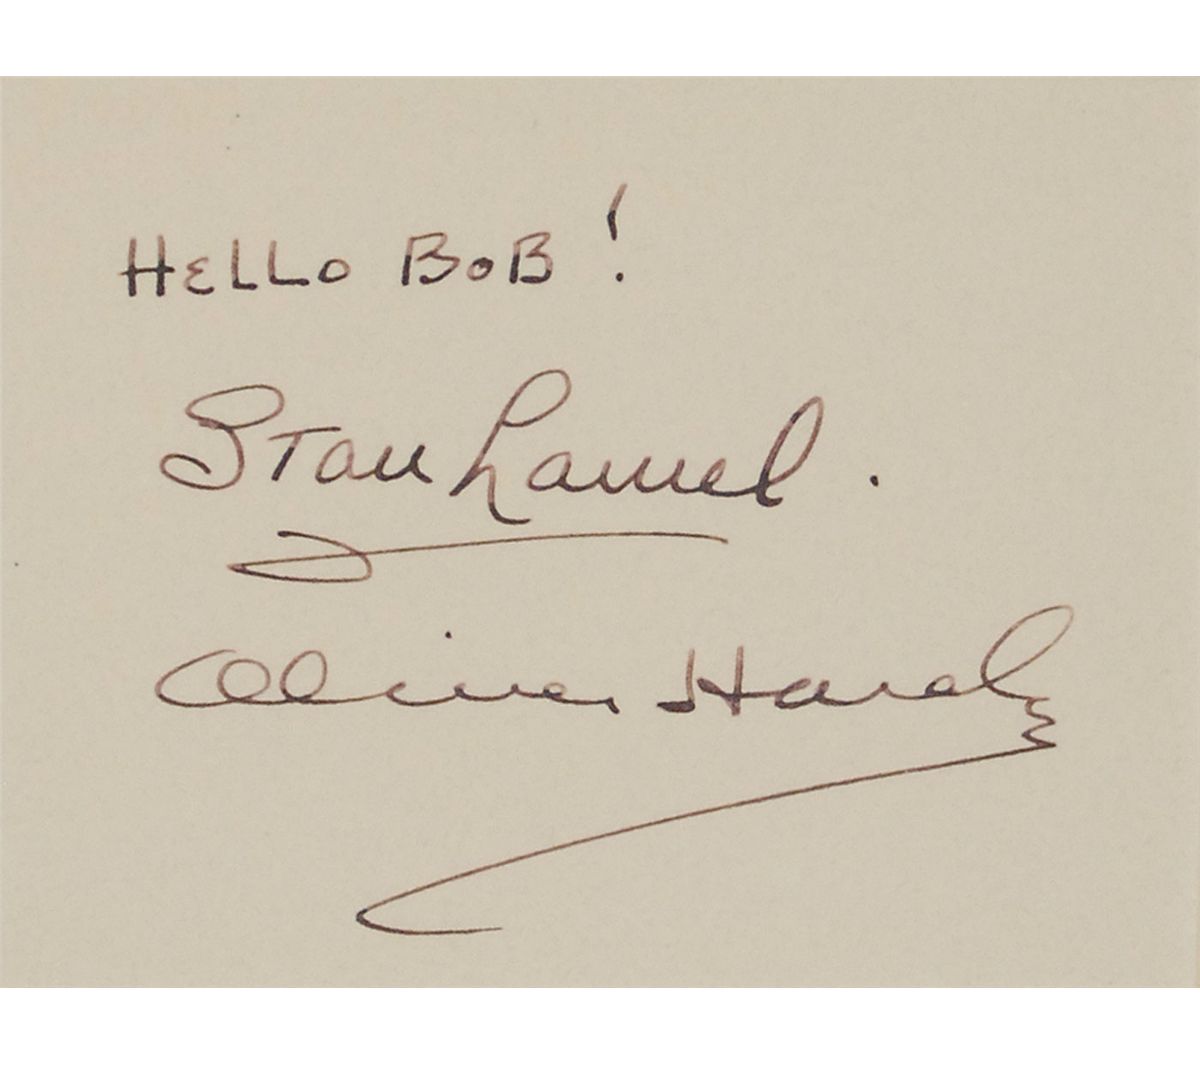 HELLO BOB!
Stan Laurel.
Oliver Hardy